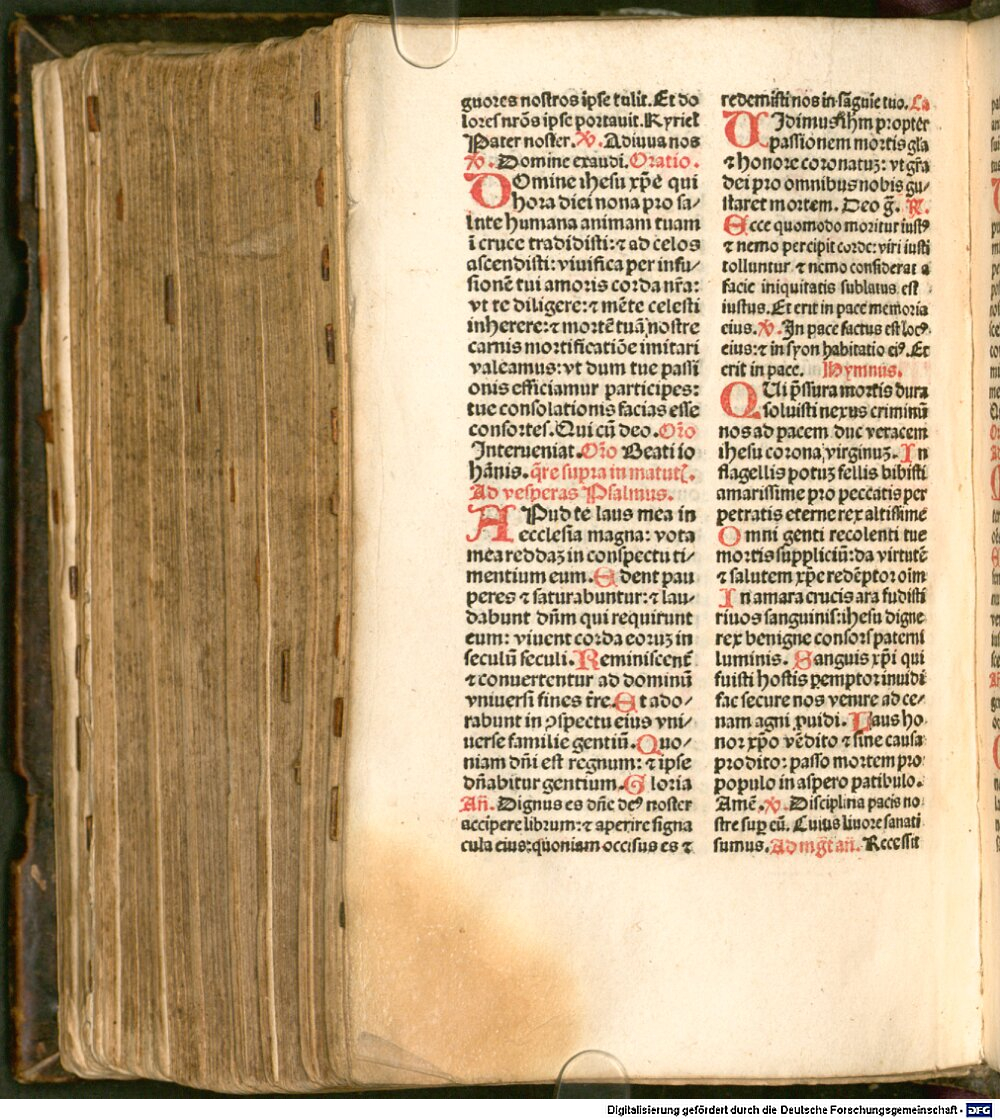 guores nostros ipse tulit. Et do
lores nr̄os ipse portauit. Kyriel
Pater noster. ℣. Adiuua nos
℣. Domine exaudi. Oratio.
DOmine ihesu xp̄e qui
hora diei nona pro sa/
lute humana animam tuam
ī cruce tradidisti: ⁊ ad celos
ascendisti: viuifica per infu/
sionē tui amoris corda nr̄a:
vt te diligere: ⁊ mēte celesti
inherere: ⁊ mortē tuā nostre
carnis mortificatiōe imitari
valeamus: vt dum tue passi
onis efficiamur participes:
tue consolationis facias esse
consortes. Qui cū deo. Or̄o
Interueniat. Or̄o Beati io
hānis. q̄re supra in matutꝭ.
Ad vesperas Psalmus.
APud te laus mea in
ecclesia magna: vota
mea reddaꝫ in conspectu ti/
mentium eum. Edent pau
peres ⁊ saturabuntur: ⁊ lau/
dabunt dn̄m qui requirunt
eum: viuent corda eoruꝫ in
seculū seculi. Reminiscent̄
⁊ conuertentur ad dominū
vniuersi fines t̄re. Et ado/
rabunt in ↄspectu eius vni/
uerse familie gentiū. Quo/
niam dn̄i est regnum: ⁊ ipse
dn̄abitur gentium. Gloria
An̄. Dignus es dn̄e deꝰ noster
accipere librum: ⁊ aperire signa
cula eius: quoniam occisus es ⁊
redemisti nos in sāguīe tuo. Ca
VIdimus ihm propter
passionem mortis gl̄a
⁊ honore coronatuꝫ: vt gr̄a
dei pro omnibus nobis gu/
staret mortem. Deo ḡ. ℟.
Ecce quomodo moritur iustꝰ
⁊ nemo percipit corde: viri iusti
tolluntur ⁊ nemo considerat a
facie iniquitatis sublatus est
iustus. Et erit in pace memoria
eius. ℣. In pace factus est locꝰ
eius: ⁊ in syon habitatio eiꝰ. Et
erit in pace. Hymnus.
QUi p̄ssura mortis dura
soluisti nexus criminū
nos ad pacem duc veracem
ihesu corona virginuꝫ. In
flagellis potuꝫ fellis bibisti
amarissime pro peccatis per
petratis eterne rex altissime
Omni genti recolenti tue
mortis suppliciū: da virtutē
⁊ salutem xp̄e redēptor oīm
In amara crucis ara fudisti
riuos sanguinis: ihesu digne
rex benigne consors paterni
luminis. Sanguis xp̄i qui
fuisti hostis ꝑemptor inuidi
fac secure nos venire ad ce/
nam agni ꝓuidi. Laus ho
nor xp̄o vēdito ⁊ sine causa
prodito: passo mortem pro
populo in aspero patibulo.
Amē. ℣. Disciplina pacis no
stre suꝑ eū. Cuius liuore sanati
sumus. Ad mg̅t an̄. Recessit
Digitalisierung gefördert durch die Deutsche Forschungsgemeinschaft - DFG